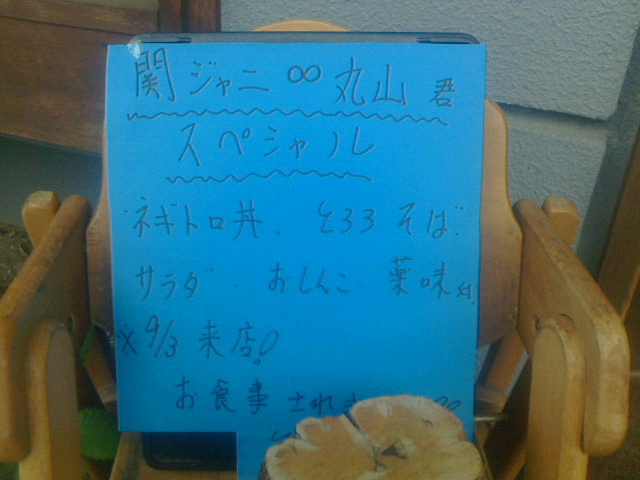 関ジャニ∞丸山君
スペシャル
ネギトロ丼. とろろそば.
サラダ. おしんこ. 薬味付.
※9/3 来店!
お食事されま